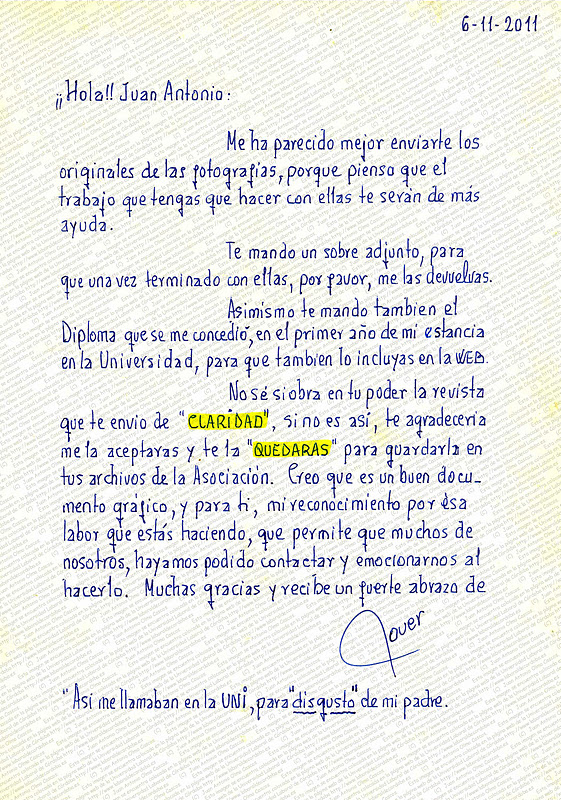 6-11-2011
¡¡Hola!! Juan Antonio:
Me ha parecido mejor enviarte los
originales de las fotografias, porque pienso que el
trabajo que tengas que hacer con ellas te serán de más
ayuda.
Te mando un sobre adjunto, para
que una vez terminado con ellas, por favor, me las devuelvas.
Asimismo te mando tambien el
Diploma que se me concedió, en el primer año de mi estancia
en la Universidad, para que tambien lo incluyas en la WEB.
No sé si obra en tu poder la revista
que te envio de "CLARIDAD", si no es así, te agradeceria
me la aceptaras y te la "QUEDARAS" para guardarla en
tus archivos de la Asociación. Creo que es un buen docu-
mento gráfico, y para ti, mi reconocimiento por ésa
labor que estás haciendo, que permite que muchos de
nosotros, hayamos podido contactar y emocionarnos al
hacerlo. Muchas gracias y recibe un fuerte abrazo de
Jover
"Asi me llamaban en la UNI, para "disgusto" de mi padre.